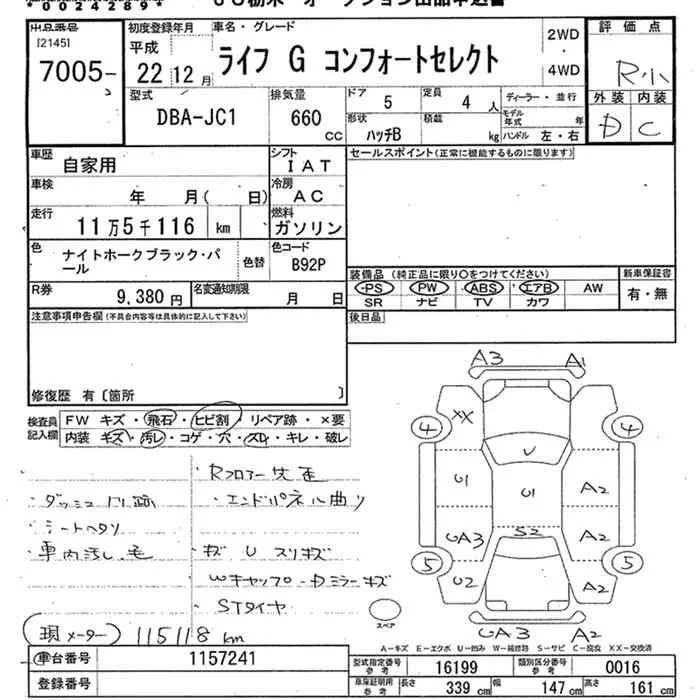 *00242889*
出品番号
[2145]
7005-
初度登録年月
平成
22 12月
車名・グレード
ライフ G コンフォートセレクト
2WD
・
4WD
評価点
R小
外装 内装
D C
型式
DBA-JC1
排気量
660
CC
ドア
5
定員
4人
形状
ハッチB
積載
kg
ディーラー・並行
モデル年式 年
ハンドル 左・右
車歴
自家用
シフト
IAT
車検
年 月( 日)
冷房
AC
走行
11万5千116 km
燃料
ガソリン
色
ナイトホークブラック・パール
色替
色コード
B92P
R券
9,380円
名変通知期限
月 日
セールスポイント(正常に機能するものに限ります)
装備品 (純正品に限り○をつけてください)
PS PW ABS エアB AW
SR ナビ TV カワ
新車保証書
有・無
後日品
注意事項申告欄(不具合内容等は具体的に記入して下さい)
修復歴 有〔箇所 〕
検査員記入欄
FW キズ・飛石・ヒビ割・リペア跡・×要
内装 キズ・汚レ・コゲ・穴・スレ・キレ・破レ
・ダッシュ 跡
・シートヘタリ
・車内汚レ、毛
・Rフロアー
・エンドパネル曲り
・キズ U スリキズ
Wキャップ・ミラーキズ
・STタイヤ
(現メーター) 115118 km
A3 A1
4 XX 4
U
U1 U1 A2
UA3 S2 A2
5 U2 A2 5
UA3 A2
スペア
A-キズ E-エクボ U-凹み W-補修跡 S-サビ C-腐食 XX-交換済
車台番号
1157241
登録番号
型式指定番号
参考
16199
類別区分番号
参考
0016
車庫証明用
参考
長さ 339 cm
幅 147 cm
高さ 161 cm